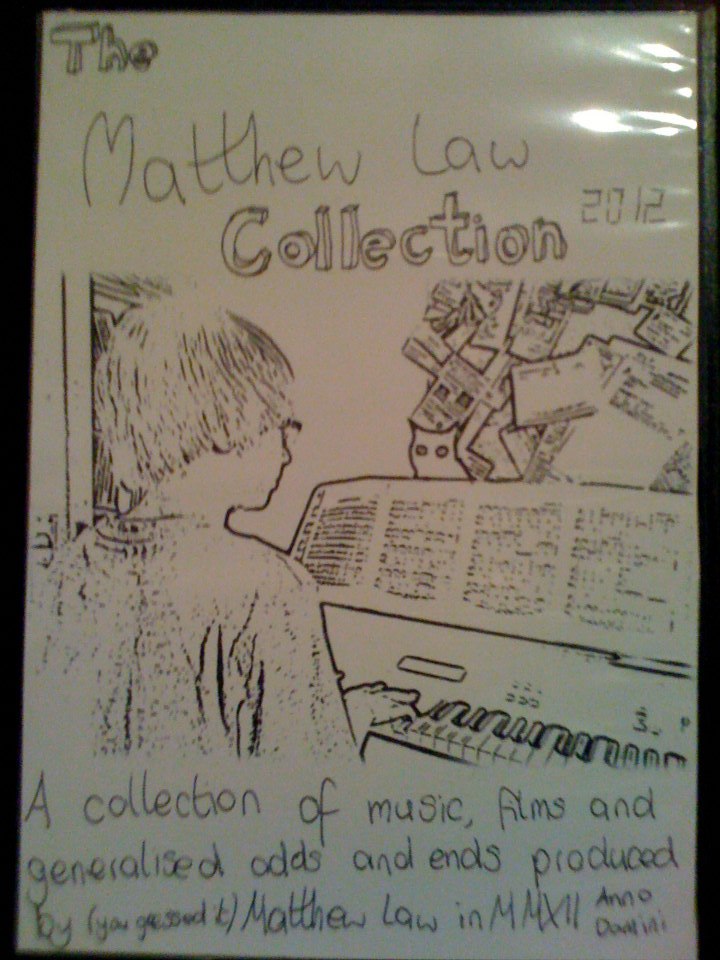 The
Matthew Law
Collection 2012
A collection of music, films and
generalised odds and ends produced
by (you guessed it) Matthew Law in MMXII Anno
Domini